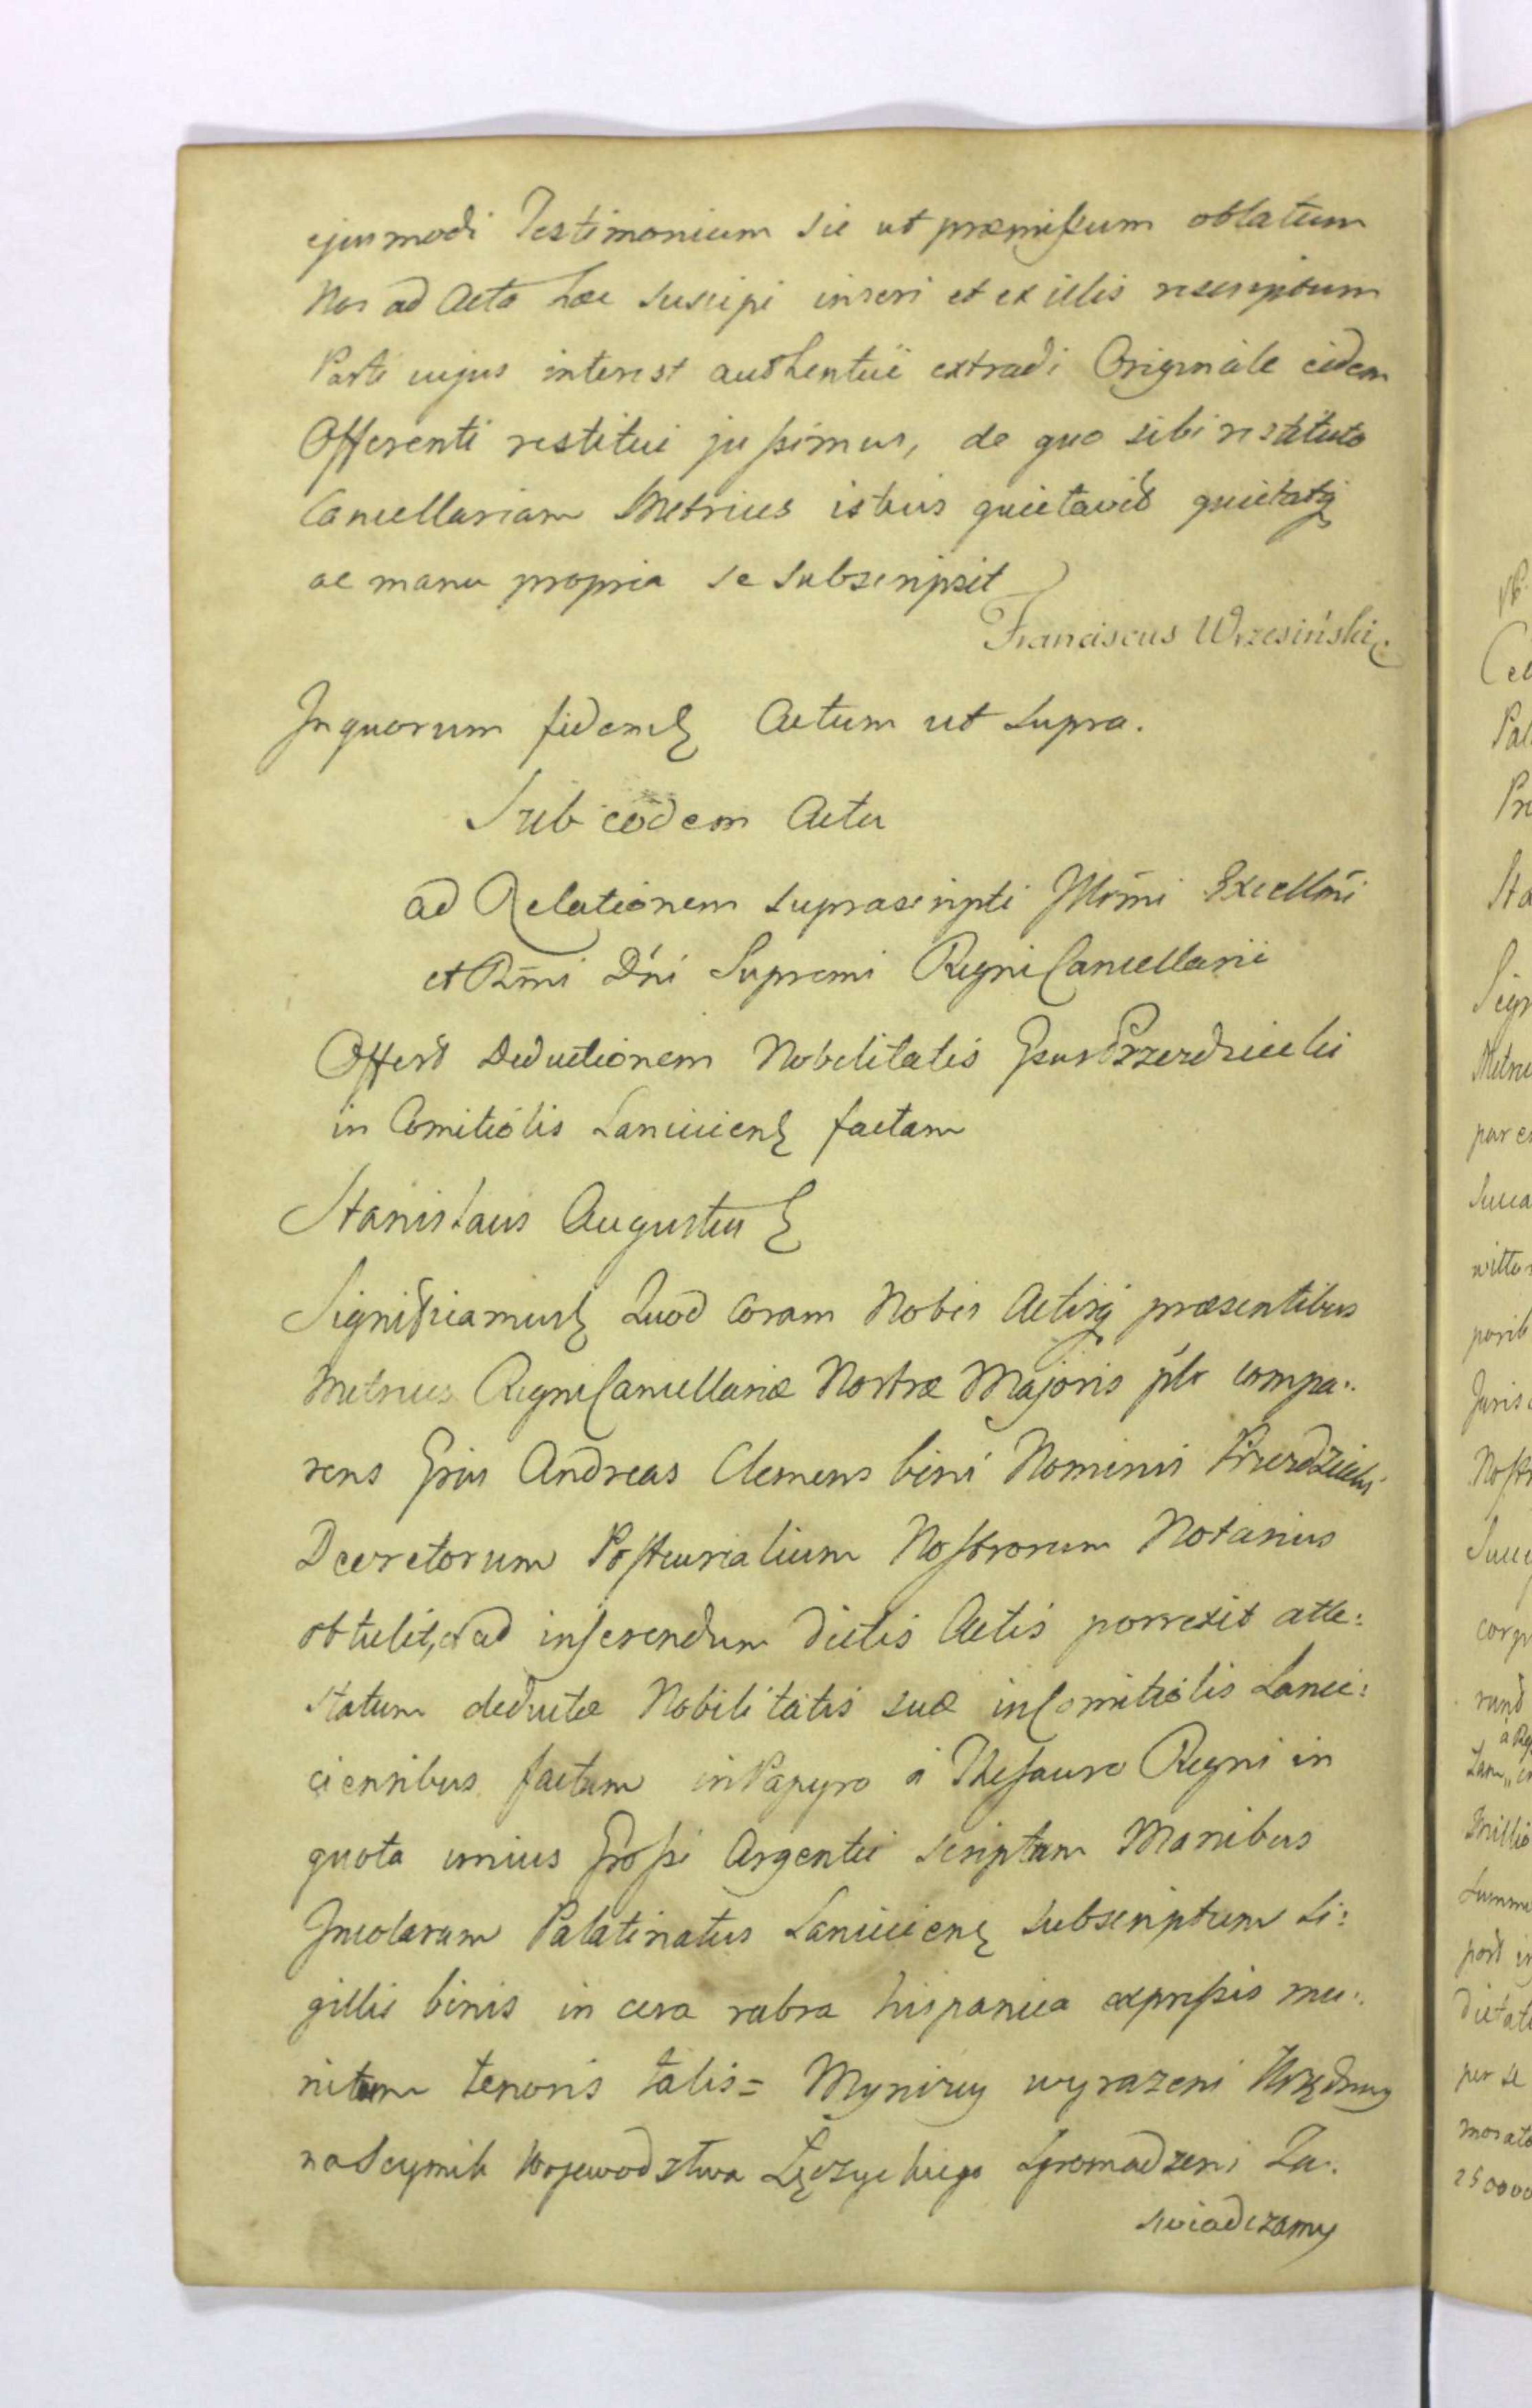 ejusmodi Testimonium sic ut præmissum oblatum
Nos ad Acta hæc suscipi inseri et ex illis rescriptum
Parti cujus interest authentice extradi Originale eidem
Offerenti restitui jussimus, de quo sibi restituto
Cancellariam Metrices istius quietavit quietatq
ac manu propria se subscripsit
Franciscus Wrzesiński
In quorum fidem Actum ut supra.
Sub eodem Actu
ad Relationem suprascripti Illrmi Excellmi
et Rmi Dni Supremi Regni Cancellarii
Offert Deductionem Nobilitatis Gsus
in Comitiolis Lanciciens factam
Stanislaus Augustus
Significamus Quod Coram Nobis Actisq præsentibus
Metrices Regni Cancellariæ Nostræ Majoris plr compa:
rens Grsus Andreas Clemens bini Nominis
Decretorum Postcurialium Nostrorum Notarius
obtulit, et ad inserendum dictis Actis porrexit atte:
statum deductæ Nobilitatis suæ in Comitiolis Lanci:
ciensibus factum in Papyro a Thesauro Regni in
quota unius Grossi Argentei scriptum Manibus
Incolarum Palatinatus Lanciciens subscriptum Si:
gillis binis in cera rubra hispanica expressis mu:
nitum tenoris talis = My niżey wyrażeni Urzędnicy
na Seymik Wojewodztwa Łęczyckiego zgromadzeni Za:
swiadczamy
Cel
Pal
Sta
Metric
Juris